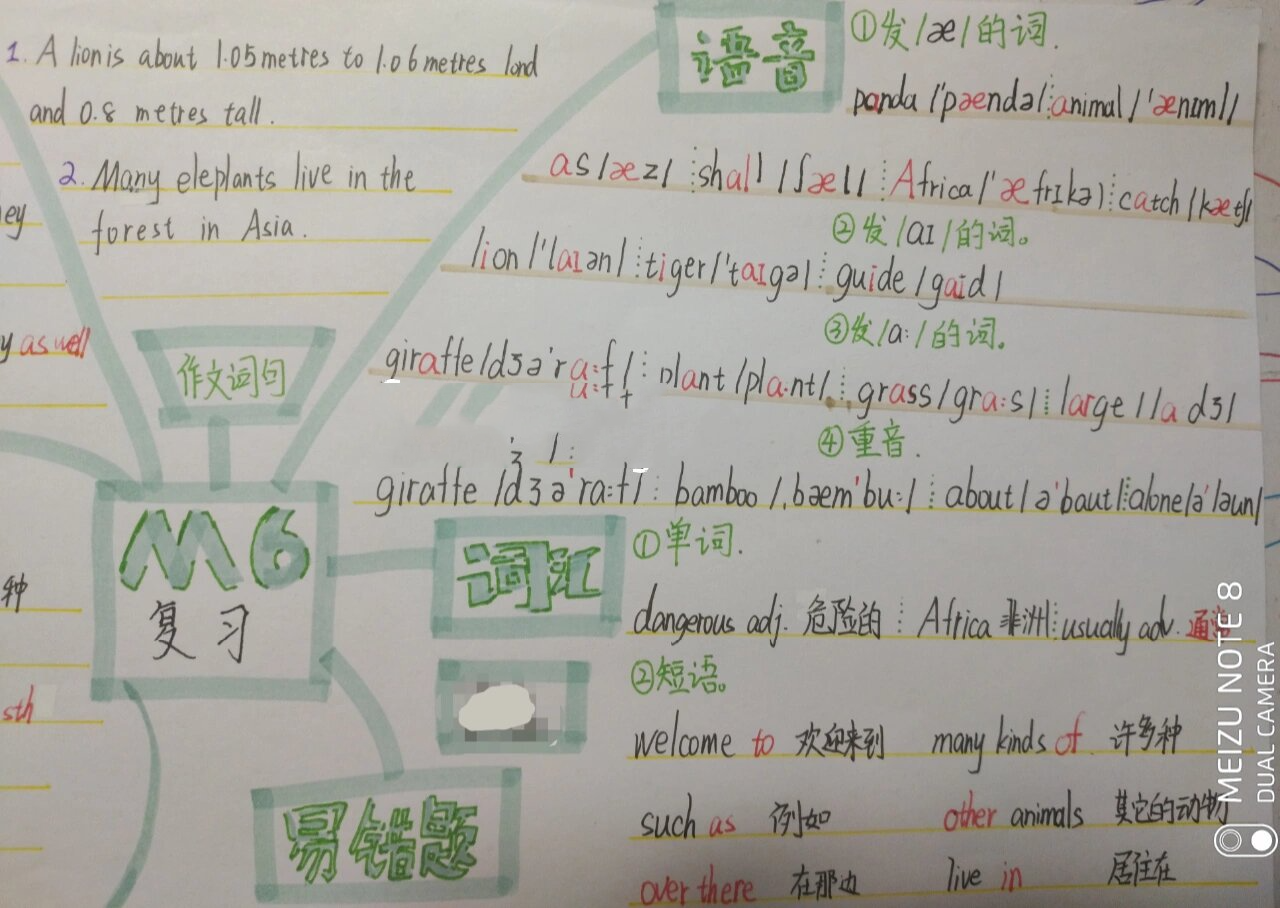 1. A lion is about 1.05 metres to 1.06 metres lond
and 0.8 metres tall.
2. Many eleplants live in the
forest in Asia.
ey
y as well
作文词句
M6
复习
种
sth
语音
①发/æ/的词.
panda /'pændə/ animal /'ænɪml/
as /æz/ shall /ʃæl/ Africa /'æfrɪkə) catch /kætʃ/
②发/aɪ/的词。
lion /'laɪən/ tiger /'taɪgə/ guide /gaid/
③发/a:/的词.
giraffe /dʒə'ra:f/ plant /pla:nt/ grass /gra:s/ large /la dʒ/
④重音.
giraffe /dʒə'ra:f/ bamboo /,bæm'bu:/ about /ə'baut/ alone /ə'ləun/
词汇
①单词.
dangerous adj. 危险的 Africa 非洲 usually adv. 通常
②短语。
welcome to 欢迎来到 many kinds of 许多种
such as 例如 other animals 其它的动物
over there 在那边 live in 居住在
易错题
MEIZU NOTE 8
DUAL CAMERA